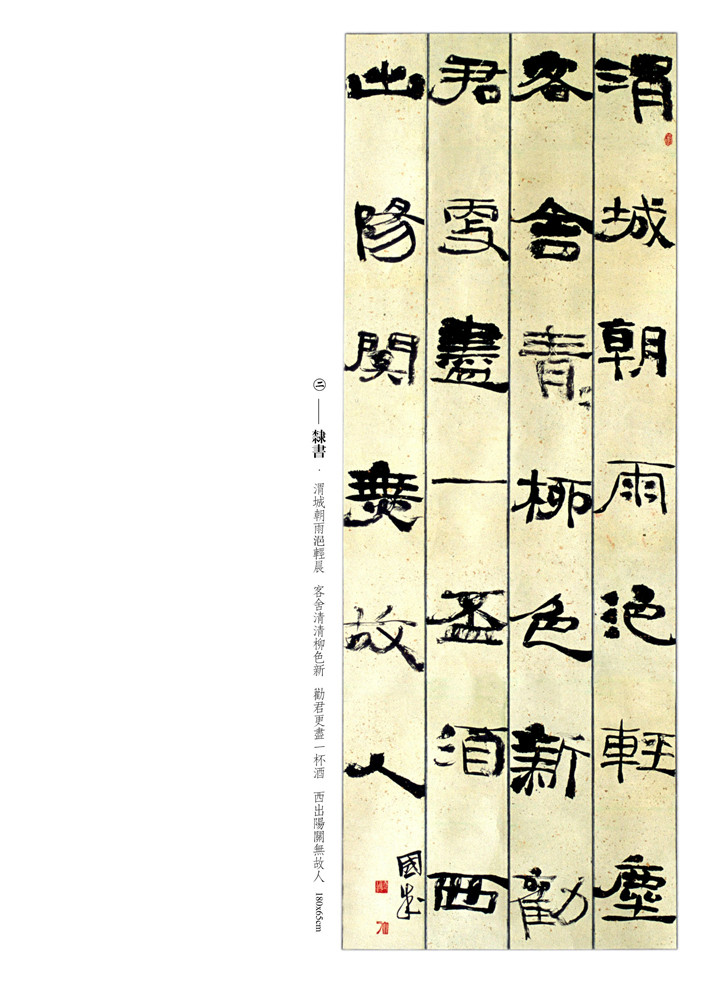 渭城朝雨浥輕塵
客舍青〻柳色新勸
君更盡一盃酒西
出陽關無故人
國
㊁ —— 隸書 · 渭城朝雨浥輕晨 客舍清清柳色新 勸君更盡一杯酒 西出陽關無故人 180x65cm